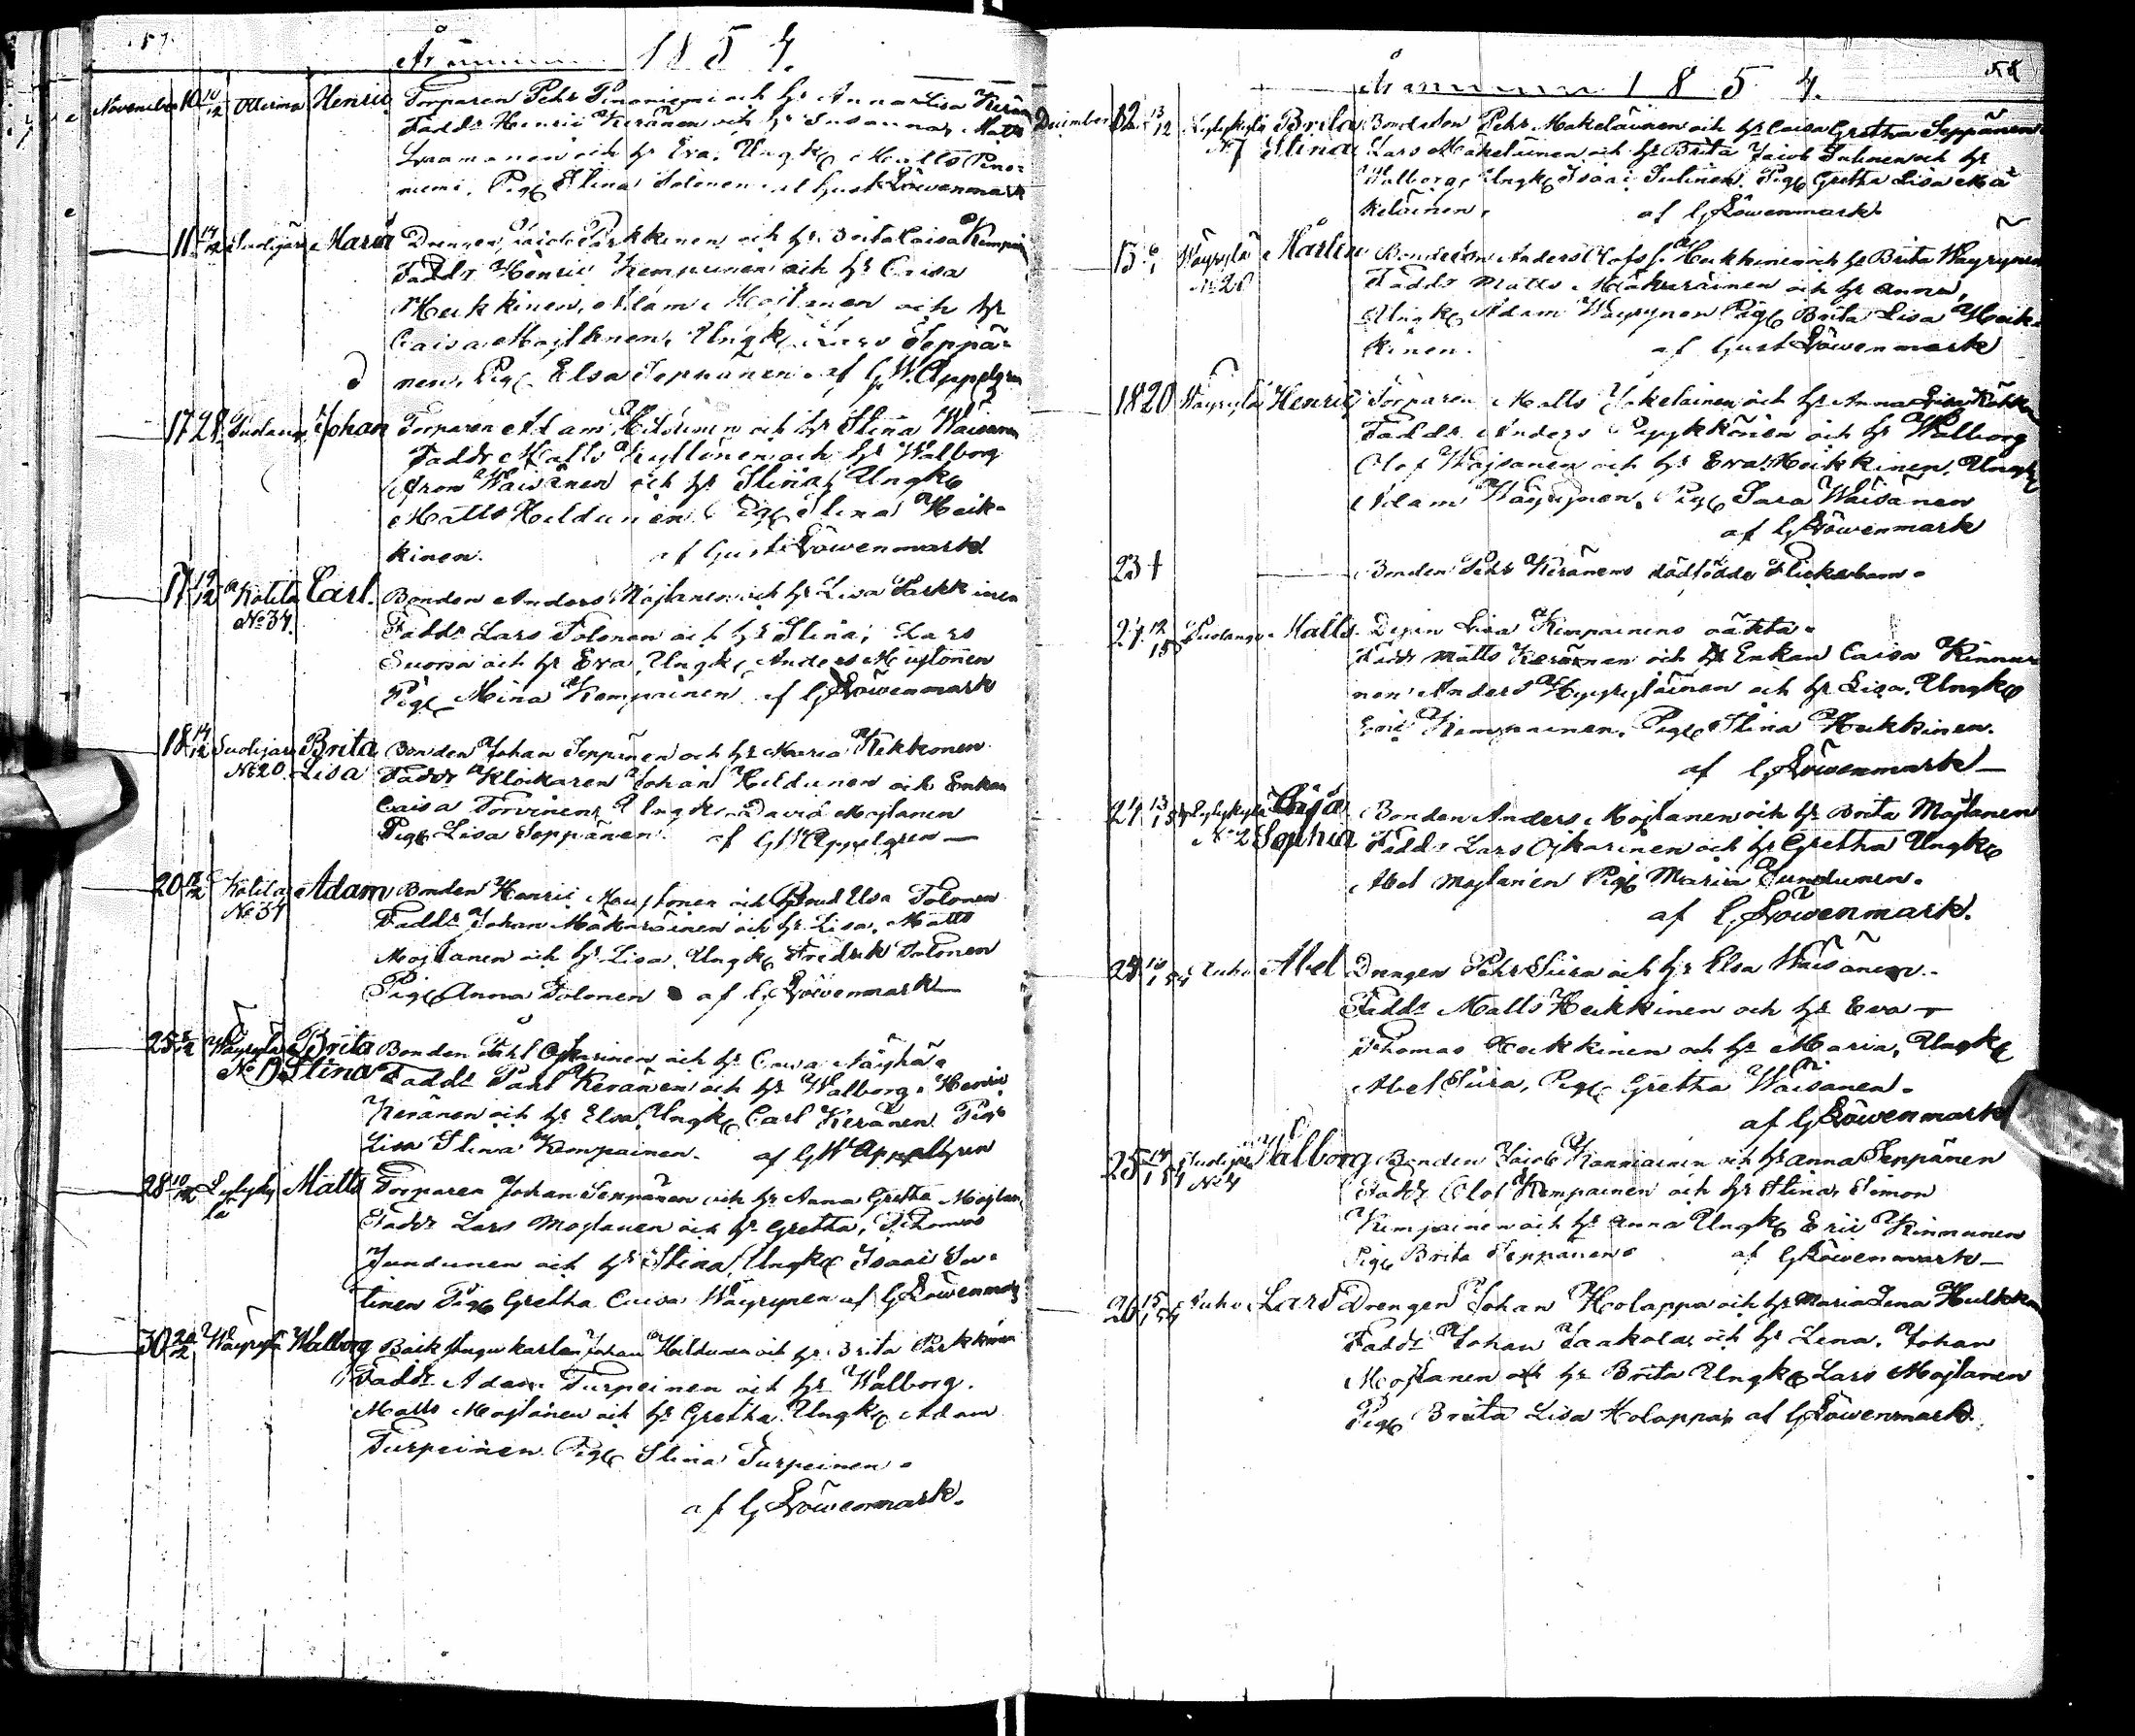 57.
År 1854.
November 10 10/12 Otterma Henric Torparen Pehr Pinoniemi och h: Anna Lisa Kerän
Faddr Henric Keränen och h: Susanna, Matts
och h: Eva. Ungk Matts Pino-
niemi, Pig Stina Tolonen af Gust Löwenmark
11 14/12 Suolijärvi Maria Drengen Jacob Parkkinen och h: Brita Caisa Kempai
Faddr Henric Kempainen och h: Caisa
Heikkinen, Adam Mojlanen och h:
Caisa Mojlanen, Ungk Lars Seppä-
nen, Pig Elsa Seppänen af G.W. Appelgren
17 24 Puolango Johan Torparen Adam Hildunen och h: Stina Waisänen
Faddr Matts Kyllönen och h: Walborg
Aron Waisänen och h: Stina, Ungk
Matts Hildunen Pig Stina Heik-
kinen. af Gust Löwenmark
17 19/12 Kotila Carl. Bonden Anders Mojlanen och h: Lisa Parkkinen
No 34. Faddr Lars Tolonen och h: Stina, Lars
Suorsa och h: Eva, Ungk Anders
Pig Mina Kempainen af G Löwenmark
18 14/12 Suolijärvi Brita Bonden Johan Seppänen och h: Maria Kekkonen
No 20. Lisa Faddr Klockaren Johan Hildunen och Enkan
Caisa Torvinen, Ungk David Mojlanen
Pig Lisa Seppänen. af G W Appelgren
20 Kotila Adam Bonden Henric och Elsa Tolonen
No 34 Faddr Johan Mäkäräinen och h: Lisa, Matts
Mojlanen och h: Lisa, Ungk Fredrik Tolonen
Pig Anna Tolonen af G Löwenmark
25 Wäyrylä Brita Bonden Påhl Ojkarinen och h: Caisa Näyhä
No 1 Stina Faddr Påhl Keränen och h: Walborg. Henric
Keränen och h: Elsa, Ungk Carl Keränen Pig
Lisa Stina Kempainen. af G W Appelgren
28 10/12 Lylyky Matts Torparen Johan Seppänen och h: Anna Gretha Mojlan
lä Faddr Lars Mojlanen och h: Gretha, Thomas
Jundunen och h: Stina, Ungk Isaac Ju-
tinen Pig Gretha Caisa Wäyrynen af G Löwenmark
30 Wäyrylä Walborg Johan Hildunen och h: Brita Parkkinen
Faddr Adam Turpeinen och h: Walborg.
Matts Mojlanen och h: Gretha, Ungk Adam
Turpeinen Pig Stina Turpeinen.
af G Löwenmark.
58
År 1854.
December 12 13/12 Lylykylä Brita Bondeson Pehr Makeläinen och h: Caisa Gretha Seppänen
No 7 Stina Lars Makeläinen och h: Brita Jacob Jutinen och h:
Walborg, Ungk Isaac Jutinen. Pig Gretha Lisa Ma
keläinen. af G Löwenmark
15 Wäyrylä Mårten Bondeson Anders Olofs s. Heikkinen och h: Brita Wäyrynen
No 20 Faddr Matts Mäkäräinen och h: Anna,
Ungk Adam Wäyrynen Pig Brita Lisa Heik-
kinen. af Gust Löwenmark
18 20 Wäyrylä Henric Torparen Matts och h: Anna
Faddr Anders Pyykkönen och h: Walborg
Olof Wajsanen och h: Eva Heikkinen, Ungk
Adam Wäyrynen. Pig Sara Waisänen
af G Löwenmark
23 † Bonden Pehr Keränens dödfödda Flickebarn.
21 Puolango Matts Lisa Kempainens oäkta.
Faddr Matts Keränen och Enkan Caisa Kinnu
nen Anders Hyyryläinen och h: Lisa. Ungk
Eric Kempainen. Pig Stina Heikkinen.
af G Löwenmark
21 Lylykylä Cajsa Bonden Anders Mojlanen och h: Brita Mojlanen
No 2 Sophia Faddr Lars Ojkarinen och h: Gretha Ungk
Abel Mojlanen Pig Maria Jundunen.
af G Löwenmark.
24 Puho Abel Drengen Pehr Siira och h: Elsa Waisänen.
Faddr Matts Heikkinen och h: Eva
Thomas Heikkinen och h: Maria, Ungk
Abel Siira, Pig Gretha Waisanen.
af G Löwenmark
25 Suolijärvi Walborg Bonden Jacob Kanniainen och h: Anna Seppänen
No 4 Faddr Olof Kempainen och h: Stina, Simon
Kempainen och h: Anna Ungk Eric Kinnunen
Pig Brita Seppänen. af G Löwenmark
26 Puho Lars Drengen Johan Holappa och h: Maria Lena Hulkko
Faddr Johan Jaakola och h: Lena, Johan
Mojlanen och h: Brita Ungk Lars Mojlanen
Pig Brita Lisa Holappa af G Löwenmark.